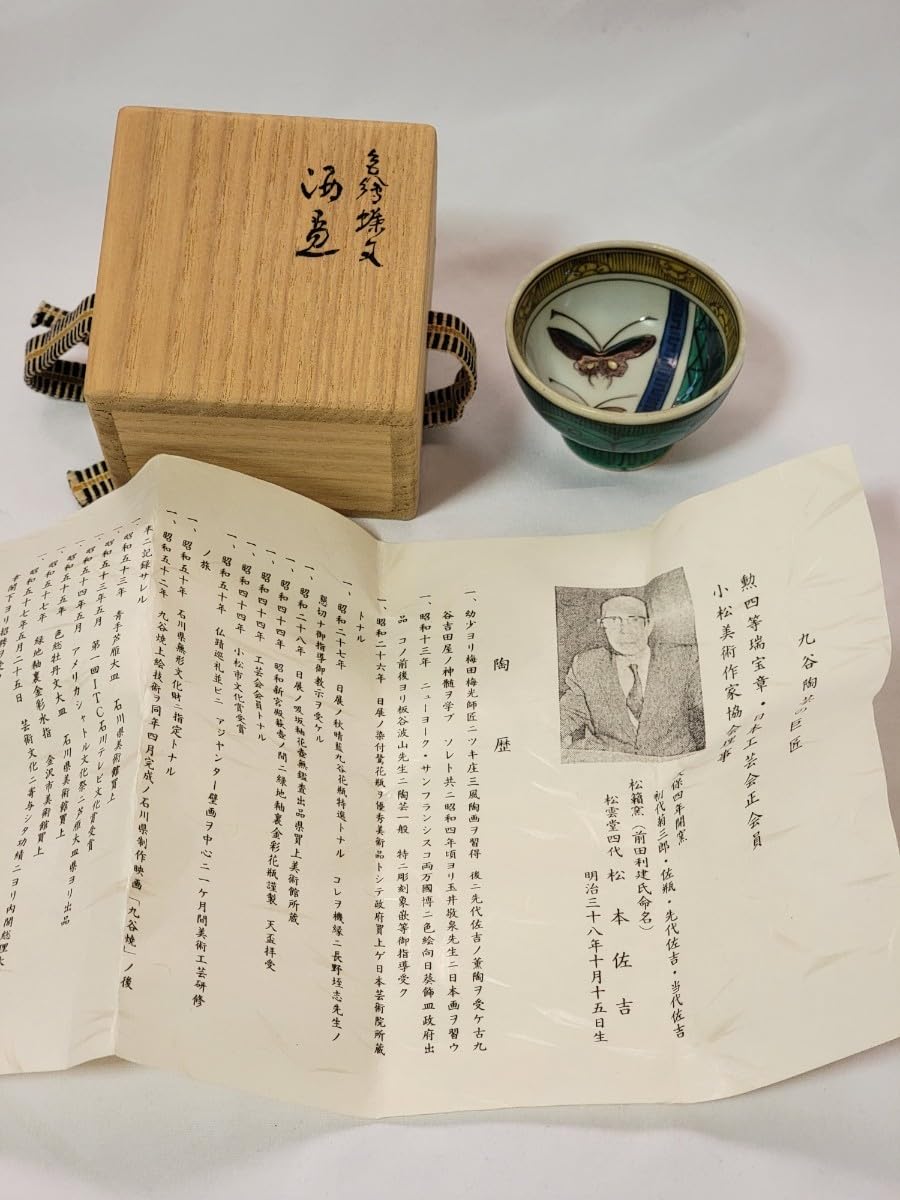 色絵蝶文
酒盃
九谷陶芸の巨匠
勲四等瑞宝章・日本工芸会正会員
小松美術作家協会理事
保四年開窯
初代菊三郎・佐瓶・先代佐吉・当代佐吉
松籟窯(前田利建氏命名)
松雲堂四代 松本佐吉
明治三十八年十月十五日生
陶歴
一、幼少ヨリ梅田梅光師匠ニツキ庄三風陶画ヲ習得 後ニ先代佐吉ノ薫陶ヲ受ケ古九
谷吉田屋ノ神髄ヲ学ブ ソレト共ニ昭和四年頃ヨリ玉井敬泉先生ニ日本画ヲ習ウ
一、昭和十三年 ニューヨーク・サンフランシスコ両万國博ニ色絵向日葵飾皿政府出
品 コノ前後ヨリ板谷波山先生ニ陶芸一般 特ニ彫刻象嵌等御指導受ク
一、昭和二十六年 日展ノ染付鷺花瓶ヲ優秀美術品トシテ政府買上ゲ日本芸術院所蔵
トナル
一、昭和二十七年 日展ノ秋晴藍九谷花瓶特選トナル コレヲ機縁ニ長野垤志先生ノ
懇切ナ御指導御教示ヲ受ケル
一、昭和二十八年 日展ノ吸坂釉花壺無鑑査出品県買上美術館所蔵
一、昭和四十四年 昭和新宮殿菊ノ間ニ緑地釉裏金彩花瓶謹製 天盃拝受
一、昭和四十四年 工芸会会員トナル
一、昭和四十四年 小松市文化賞受賞
一、昭和五十年 仏蹟巡礼並ビニ アジヤンター壁画ヲ中心ニ一ケ月間美術工芸研修
ノ旅
一、昭和五十年 石川県無形文化財ニ指定トナル
一、昭和五十二年 九谷焼上絵技術ヲ同年四月完成ノ石川県制作映画「九谷焼」ノ後
末ニ記録サレル
一、昭和五十三年 青手芦雁大皿 石川県美術館買上
一、昭和五十三年五月 第一回ITC石川テレビ文化賞受賞
一、昭和五十四年五月 アメリカシャトル文化祭ニ芦雁大皿県ヨリ出品
一、昭和五十五年 色絵牡丹文大皿 石川県美術館買上
一、昭和五十七年 緑地釉裏金彩水指 金沢市美術館買上
一、昭和五十七年五月二十五日 芸術文化ニ寄与シタ功績ニヨリ内閣総理大